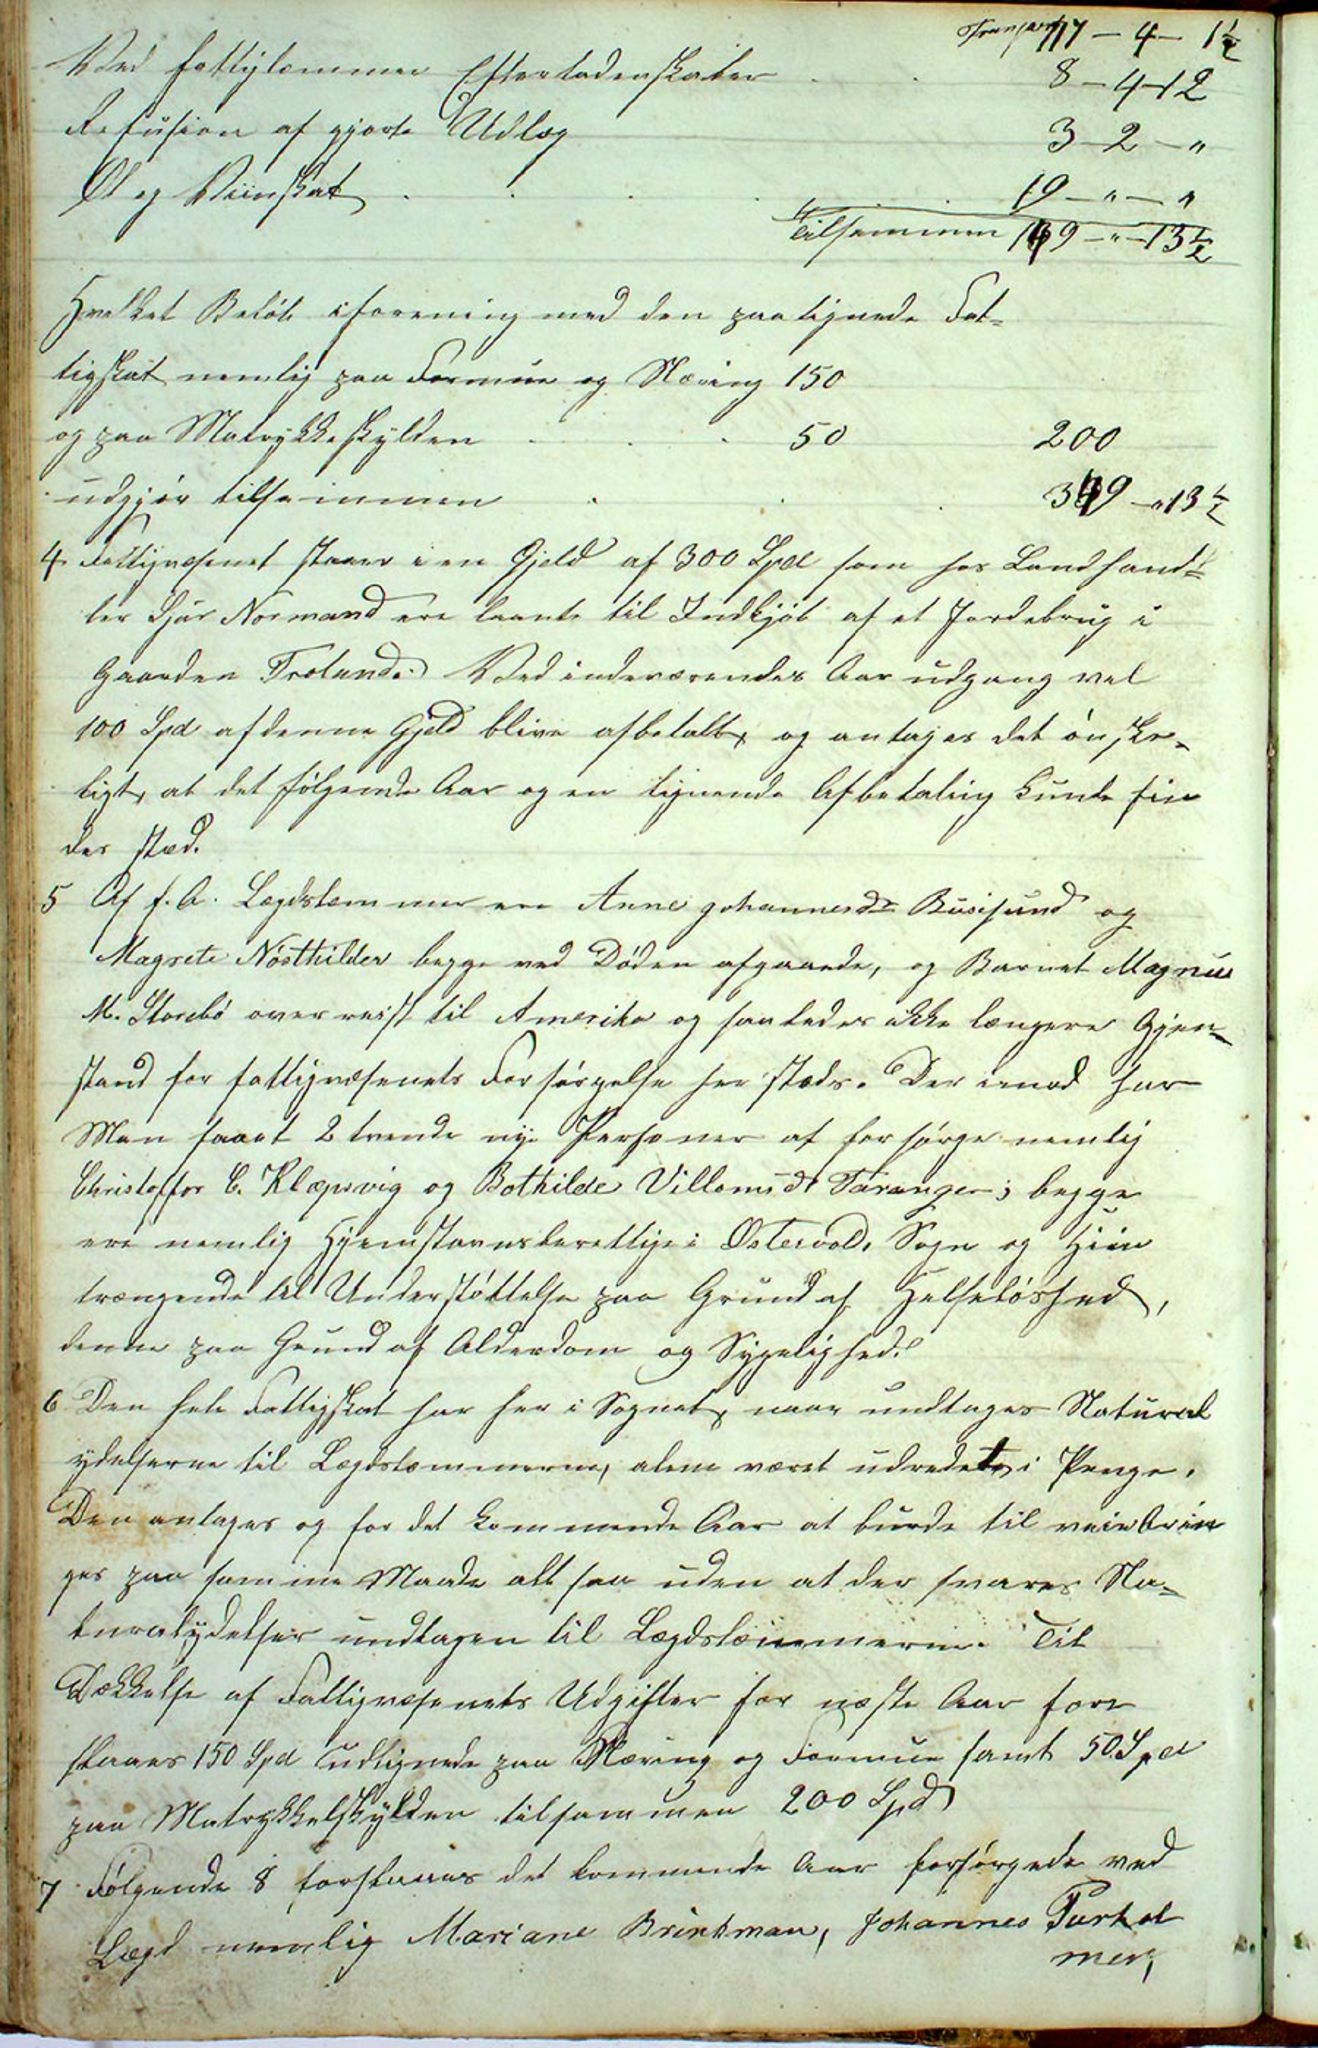 Transport 117 - 4 - 1½
Ved Fattiglemmer Efterladenskaber . . 8 - 4 - 12
Refusion af gjorte Udlæg 3 - 2 - "
Øl og Viinskat . . . . . 19 - " - "
Tilsammen 149 - " - 13½
Hvilket Beløb iforening med den paalignede Fat-
tigskat nemlig paa Formue og Næring 150
og paa Matrykkeskylden . . . 50 200
udgjør tilsammen . . . 349 - " 13½
4. Fattigvæsenet staaer i en Gjeld af 300 Spd som hos Landhand-
ler Normand ere laante til Indkjøb af et Jordebrug i
Gaarden Troland. Ved indeværendes Aar udgang vel
100 Spd af denne Gjeld blive afbetalt, og antages det ønske-
ligt, at det følgende Aar og en lignende Afbetaling kunde fin
des sted.
5 Af f. A. Lægdslemmer ere Anne Johannesdr Busesund og
Magrete Nøsthilder begge ved Døden afgaaede, og Barnet Magnus
M. Storebø overreist til Amerika og saaledes ikke længere Gjen-
stand for Fattigvæsenets Forsørgelse her steds. Derimod har
Man faaet 2 tvende nye Personer at forsørge nemlig
Christoffer C. Klepsvig og Bothilde Villomsdr Taranger; begge
ere nemlig Hjemstavnsberettige i Østervolds Sogn og Hiin
trængende til Understøttelse paa Grund af Helseløshed,
denne paa Grund af Alderdom og Sygelighed.
6 Den hele Fattigskat har her i Sognet, naar undtages Natural
ydelserne til Lægdslemmerne, alene været udredet i Penge.
Den antages og for det kommende Aar at burde til veiebrin
ges paa samme Maade altsaa uden at der svares Na-
turalydelser undtagen til Lægdslemmerne. Til
Dækkelse af Fattigvæsenets Udgifter for næste Aar fore
slaaes 150 Spd udlignede paa Næring og Formue samt 50 Spd
paa Matrykkelskylden tilsammen 200 Spd
7 Følgende 8 foreslaaes det kommende Aar forsørgede ved
Lægd nemlig Mariane Brinkman, Johannes Turhol
mer,